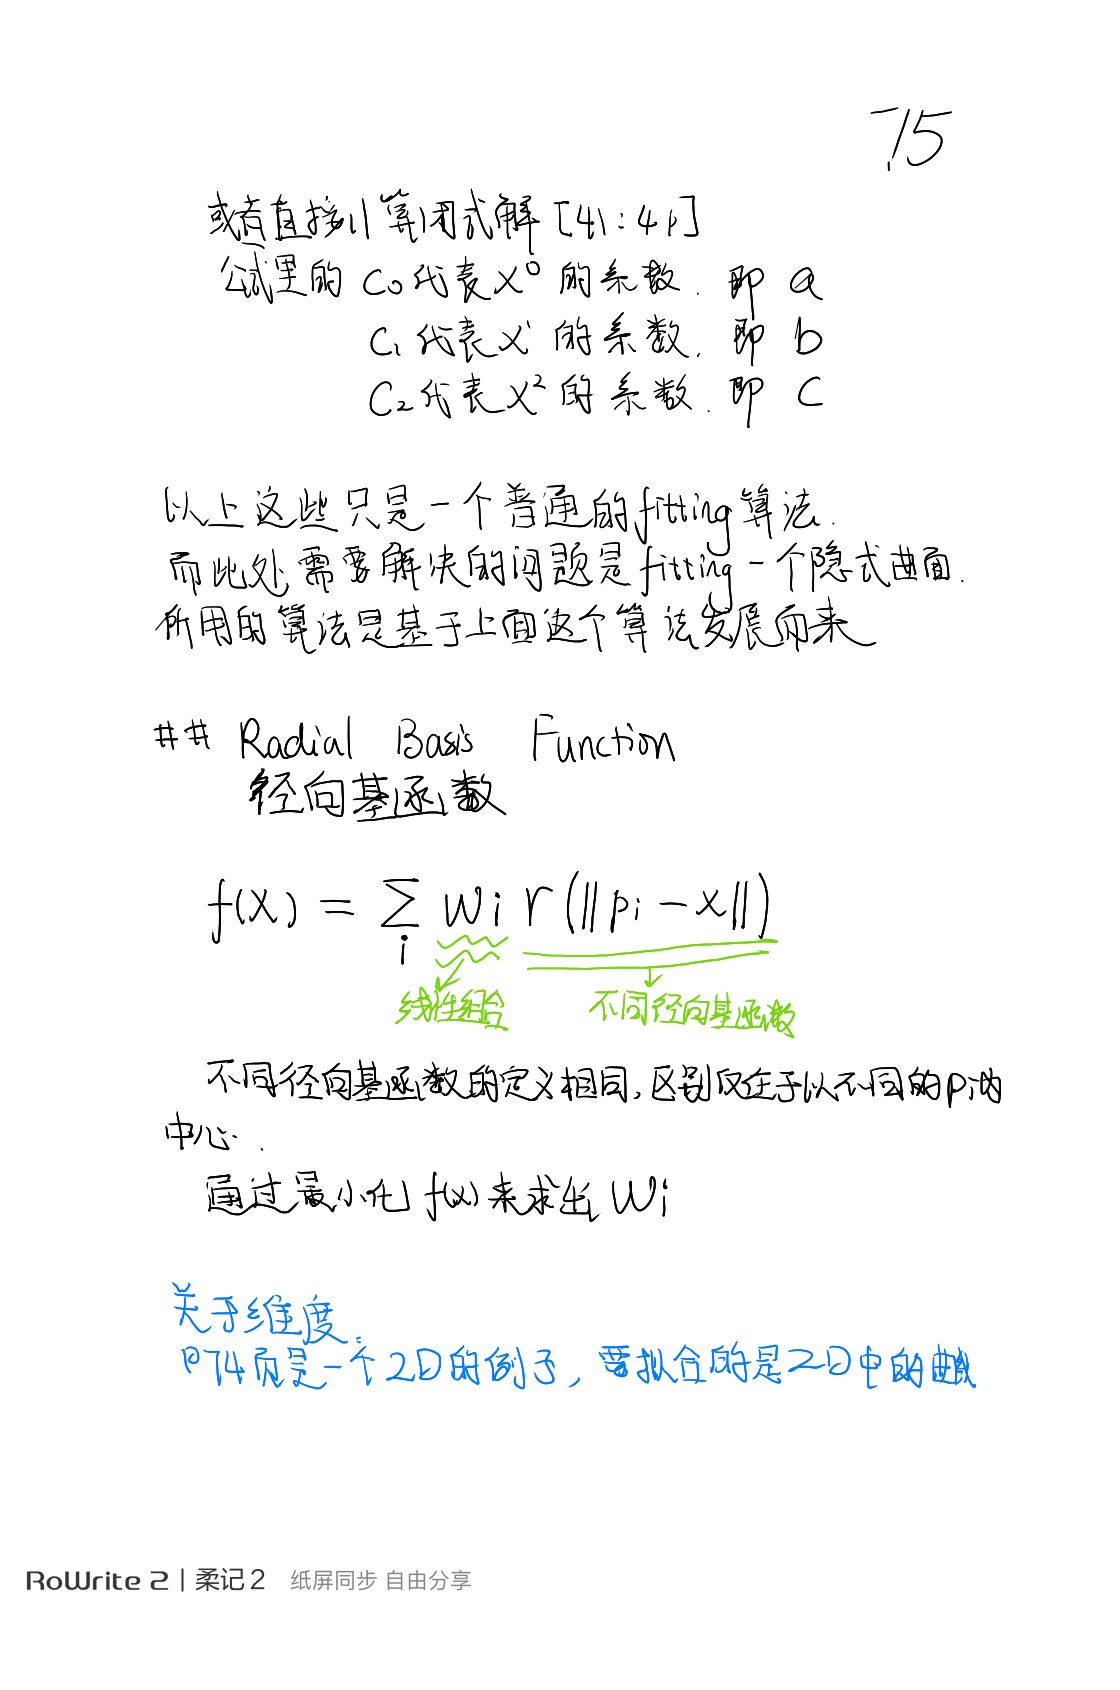 75
或者直接计算闭式解[41:41]
公式里的 C₀代表X⁰的系数. 即 a
C₁代表X¹的系数. 即 b
C₂代表X²的系数. 即 C
以上这些只是一个普通的fitting算法.
而此处需要解决的问题是fitting一个隐式曲面.
所用的算法是基于上面这个算法发展而来
## Radial Basis Function
径向基函数
f(X) = ∑ᵢ wᵢ r(‖pᵢ - x‖)
线性组合 不同径向基函数
不同径向基函数的定义相同,区别仅在于以不同的pᵢ为
中心.
通过最小化f(x)来求出 Wᵢ
关于维度:
P74页是一个2D的例子,要拟合的是2D中的曲线
RoWrite 2 | 柔记2 纸屏同步 自由分享